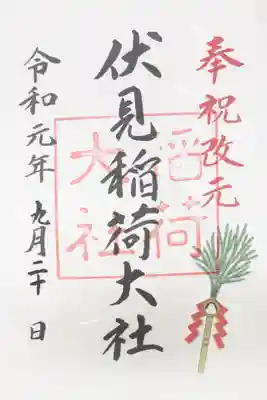 奉祝改元
伏見稲荷大社
稲荷
大社
令和元年 九月二十日